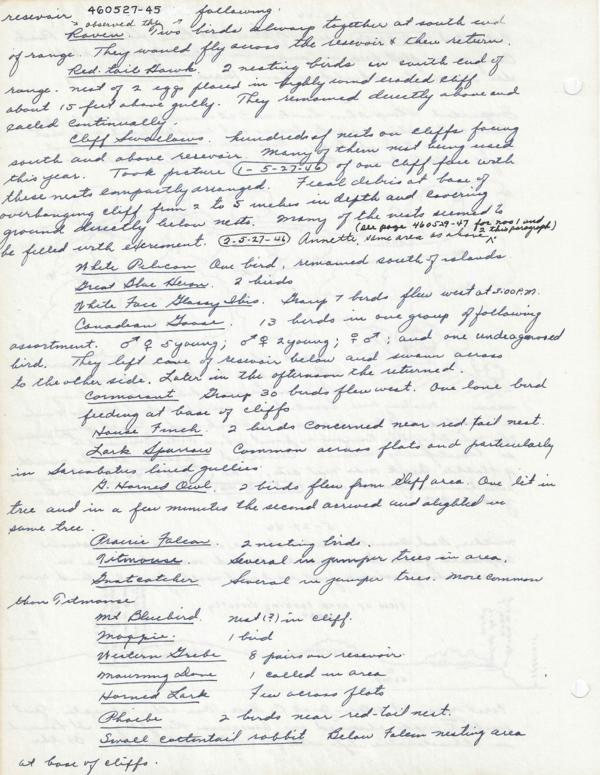 460527-45
resevoir observed the following.
Raven. Two birds always together at south end
of range. They would fly across the resevoir & then return.
Red. tail Hawk. 2 nesting birds in south end of
range. nest of 2 eggs placed in highly wind eroded cliff
about 15 feet above gully. They remained directly above and
called continually.
Cliff Swallows. hundreds of nests on cliffs facing
south and above resevoir. Many of them not being used
this year. Took picture (1-5-27-46) of one cliff face with
these nests compactly arranged. Fecal debris at base of
overhanging cliff from 2 to 5 inches in depth and covering
ground directly below nests. Many of the nests seemed to
(see page 460529-47 for no 1 and
2 this paragraph)
be filled with excrement. (2-5-27-46) Annette, same area as above.
White Pelican One bird, remained south of islands
Great Blue Heron. 2 birds
White Face Glossy Ibis. Group 7 birds flew west at 5:00 P.M.
Canadian Goose. 13 birds in one group of following
assortment. ♂♀ 5 young; ♂♀ 2 young; ♀♂; and one undiagnosed
bird. They left cove of resevoir below and swam across
to the other side. Later in the afternoon the returned.
Cormorant Group 30 birds flew west. One lone bird
feeding at base of cliffs
House Finch. 2 birds concerned near red. tail nest.
Lark Sparrow Common across flats and particularly
in Sarcobatus lined gullies.
G. Horned Owl. 2 birds flew from cliff area. One lit in
tree and in a few minutes the second arrived and alighted in
same tree.
Prairie Falcon. 2 nesting birds.
Titmouse. Several in juniper trees in area.
Gnatcatcher Several in juniper trees. more common
than Titmouse
Mt Bluebird. nest (?) in cliff.
Magpie. 1 bird
Western Grebe 8 pairs on resevoir
Mourning Dove 1 called in area
Horned Lark Few across flats
Phoebe 2 birds near red-tail nest.
Small cottontail rabbit Below Falcon nesting area
at base of cliffs.